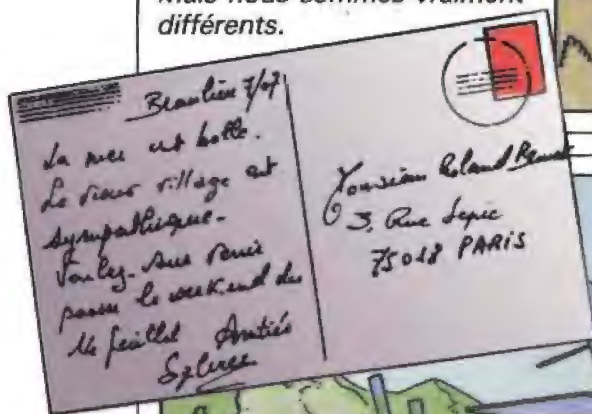 différents.
Beaulieu 7/07
La mer est belle.
Le vieux village est
sympathique.
Voulez-vous venir
passer le weekend du
14 juillet Amitiés
Sylvie
Monsieur Roland
3, Rue Lepic
75018 PARIS